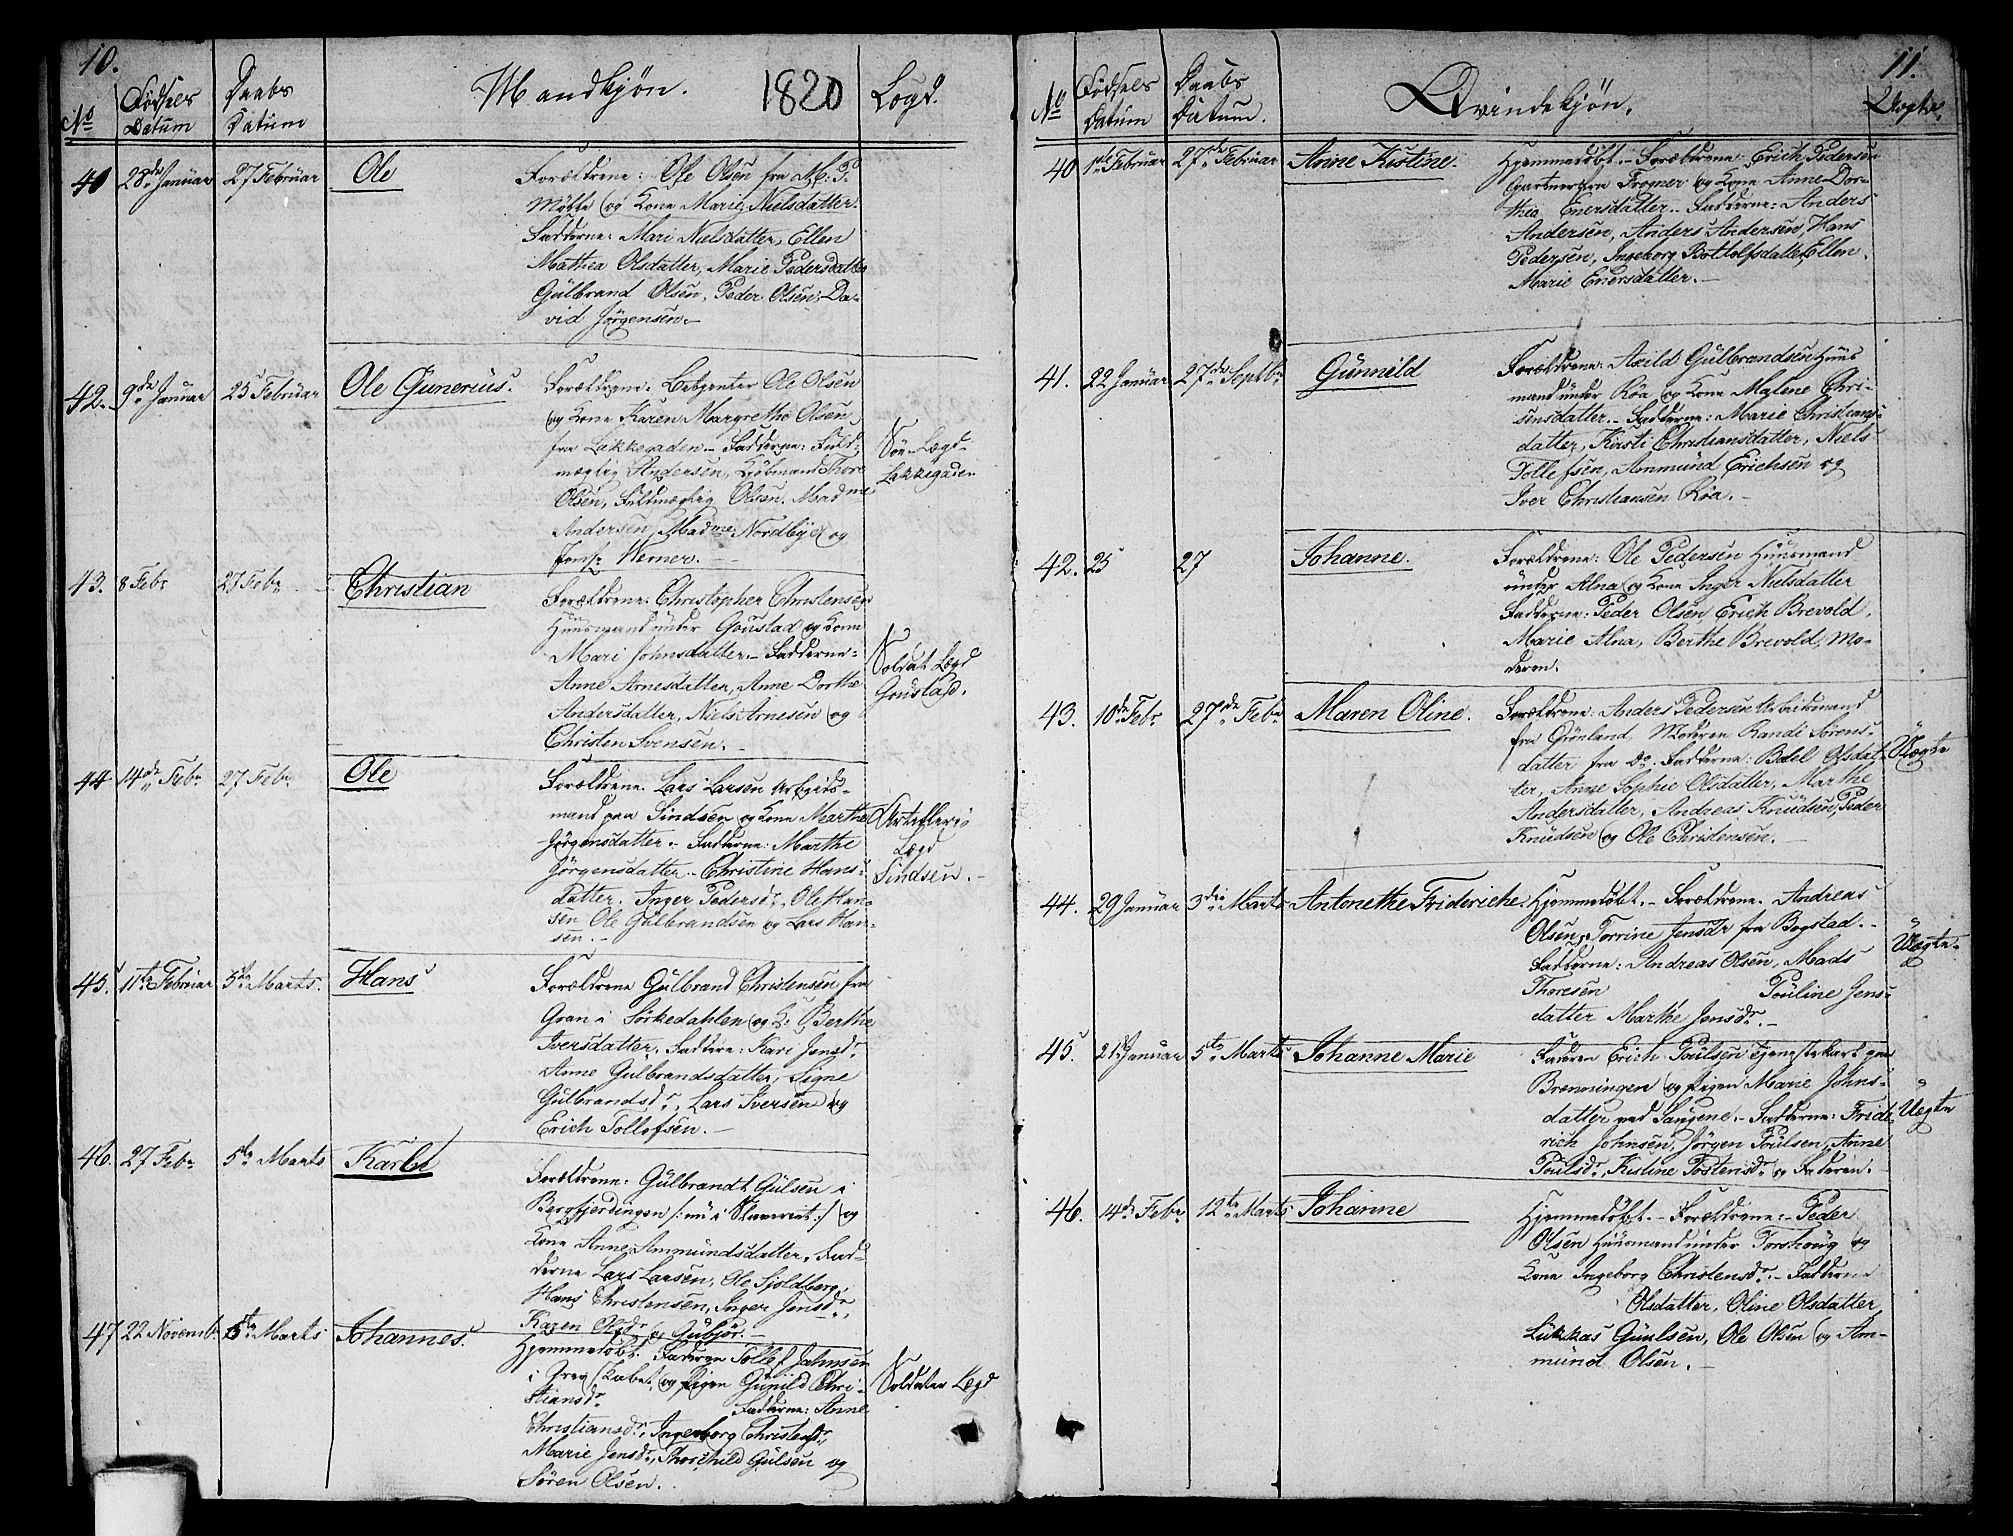 10.
No
Fødsels Datum
Daabs Datum
Mandkjøn.
1820
Lægd.
41
28de Januar
27 Februar
Ole
Forældrene: Ole Olsen fra
og Kone Marie Nielsdatter.
Fadderne: Mari Nielsdatter, Ellen
Mathea Olsdatter, Marie Pedersdatter
Gulbrand Olsen, Peder Olsen, Da-
vid Jørgensen.
42.
9de Januar
25 Februar
Ole Gunerius.
Forældrene: Betjenter Ole Olsen
og Kone Karen Margrethe Olsen
fra Lakkegaden. Fadderne: Fuld-
mægtig Andersen, Kjøbmand Thore
Olsen, Fuldmægtig Olsen, Madme
Andersen, Madme Nordbye og
Jomfr Werner.
Søe-Lægd
Lakkegaden
43.
8 Febr
27 Febr
Christian
Forældrene: Christopher Christensen
Huusmand under Goustad og Kone
Mari Johnsdatter. Fadderne
Anne Arnesdatter, Anne Dorthe
Andersdatter, Niels Arnesen og
Christen Svensen.
Soldat Lægd
Goustad.
44
14de Febr
27 Febr
Ole
Forældrene Lars Larsen Arbeids-
mand paa Sindsen og Kone Marthe
Jørgensdatter. Fadderne: Marthe
Jørgensdatter. Christine Hans-
datter. Inger Pedersdr, Ole Han-
sen Ole Gulbrandsen og Lars Han-
sen.
Artelleri
Lægd
Sindsen.
45.
11te Februar
5te Marts.
Hans
Forældrene Gulbrand Christensen fra
Gran i Sørkedahlen og K. Berthe
Iversdatter. Faddere: Kari Jensdr.
Anne Gulbrandsdatter, Signe
Gulbrandsdr, Lars Iversen og
Erich Tollefsen.
46.
27 Febr
5te Marts
Karl
Forældrene: Gulbrandt Gulsen i
Bergfjerdingen /: nu i Slaveriet :/ og
Kone Anne Ammundsdatter. Fad-
derne Lars Larsen, Ole Sjoldberg,
Hans Christensen, Inger Jensdr,
Karen Olsdr og Gubjør.
47
22 Novemb.
5te Marts
Johannes.
Hjemmedøbt. Faderen Tollef Johnsen
og Pigen Gunild Chri-
stiansdr
Fadderne: Anne
Christiansdr, Ingeborg Christensdr,
Marie Jensdr, Thorchild Gulsen og
Søren Olsen.
Soldater Lægd
11.
No
Fødsels Datum
Daabs Datum.
Qvindekjøn.
Uægte.
40
1ste Februar
27de Februar
Anne Kistine.
Hjemmedøbt. Forældrene: Erich Pedersen
Gartner fra Frogner og Kone Anne Dor-
thea Enersdatter. Fadderne: Anders
Andersen, Anders Andersen, Hans
Pedersen, Ingeborg Bottolfsdatter, Ellen
Marie Enersdatter.
41.
22 Januar
27de Septbr
Gunnild
Forældrene: Axild Gulbrandsen Huus
mand under Røa og Kone Malene Chri-
sensdatter. Fadderne: Marie Christians-
datter, Kirsti Christiansdatter, Niels
Tollefsen, Ammund Erichsen og
Iver Christiansen Røa.
42.
25
27
Johanne.
Forældrene: Ole Pedersen Huusmand
under Alna og Kone Inger Nielsdatter
Fadderne: Peder Olsen Erich Brevold,
Marie Alna, Berthe Brevold, Mo-
deren.
43.
10de Febr
27de Febr
Maren Oline.
Forældrene: Anders Pedersen Arbeidsmand
fra Grønland Moderen Randi Sørens-
datter fra Do. Fadderne: Bodel Olsdat-
ter, Anne Sophie Olsdatter, Marthe
Andersdatter, Andreas Knudsen, Peder
Knudsen og Ole Christensen.
Uægte
44.
29 Januar
3die Marts
Antonethe Frideriche.
Hjemmedøbt. Forældrene. Andreas
Olsen, Torrine Jensdr fra Bogstad.
Fadderne: Andreas Olsen, Mads
Thoresen Pouline Jens-
datter Marthe Jensdr.
Uægte
45.
21de Januar
5te Marts
Johanne Marie
Faderen Erich Poulsen Tjenestekarl paa
Brenningen og Pigen Marie Johns-
datter ved Saugene. Fadderne: Fride-
rich Johnsen, Jørgen Poulsen, Anne
Poulsdr, Kistine Tostensdr og Faderen.
Uægte
46.
14de Febr
12te Marts
Johanne
Hjemmedøbt. Forældrene: Peder
Olsen Huusmand under Torshoug og
Kone Ingeborg Christensdr. Fadderne
Olsdatter, Oline Olsdatter,
Lukkas Guulsen, Ole Olsen og Am-
mund Olsen.